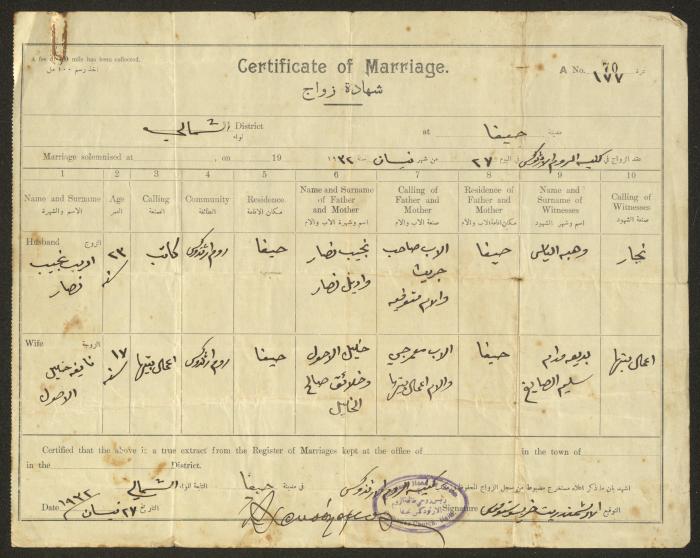 A fee of 100 mile has been collected.
أخذ رسم ١٠٠ مل
Certificate of Marriage.
شهادة زواج
A No. 70 نمرة
١٧٧
الشمالي District لواء at حيفا مدينة
Marriage solemnised at , on 19
عقد الزواج في كنيسة الروم الارثوذكس في اليوم ٢٧ من شهر نيسان سنة ١٩٣٢
1 2 3 4 5 6 7 8 9 10
Name and Surname Age Calling Community Residence Name and Surname of Father and Mother Calling of Father and Mother Residence of Father and Mother Name and Surname of Witnesses Calling of Witnesses
الاسم والشهرة العمر الصنعة الطائفة مكان الاقامة اسم وشهرة الاب والام صنعة الاب والام مكان اقامة الاب والام اسم وشهر الشهود صنعة الشهود
Husband الزوج
اديب نجيب نصار
٢٣ سنة
كاتب
روم ارثوذكس
حيفا
نجيب نصار
واديل نصار
الاب صاحب
جريدة
والام متوفيه
حيفا
وهبه الياس
نجار
Wife الزوجة
نايفه خليل
الاحول
١٧ سنة
اعمال بيتها
روم ارثوذكس
حيفا
خليل الاحول
وخلائق صالح
الخليل
الاب معمرجي
والام اعمال بيتها
حيفا
بديعه مدام
سليم الصايغ
اعمال بيتها
Certified that the above is a true extract from the Register of Marriages kept at the office of in the town of
in the District.
اشهد بان ما ذكر اعلاه مستخرج مضبوط من سجل الزواج المحفوظ كنيسة الروم الارثوذكس في مدينة حيفا التابعة للواء الشمالي
Date ٢٧ نيسان ١٩٣٢ التاريخ
Signature التوقيع